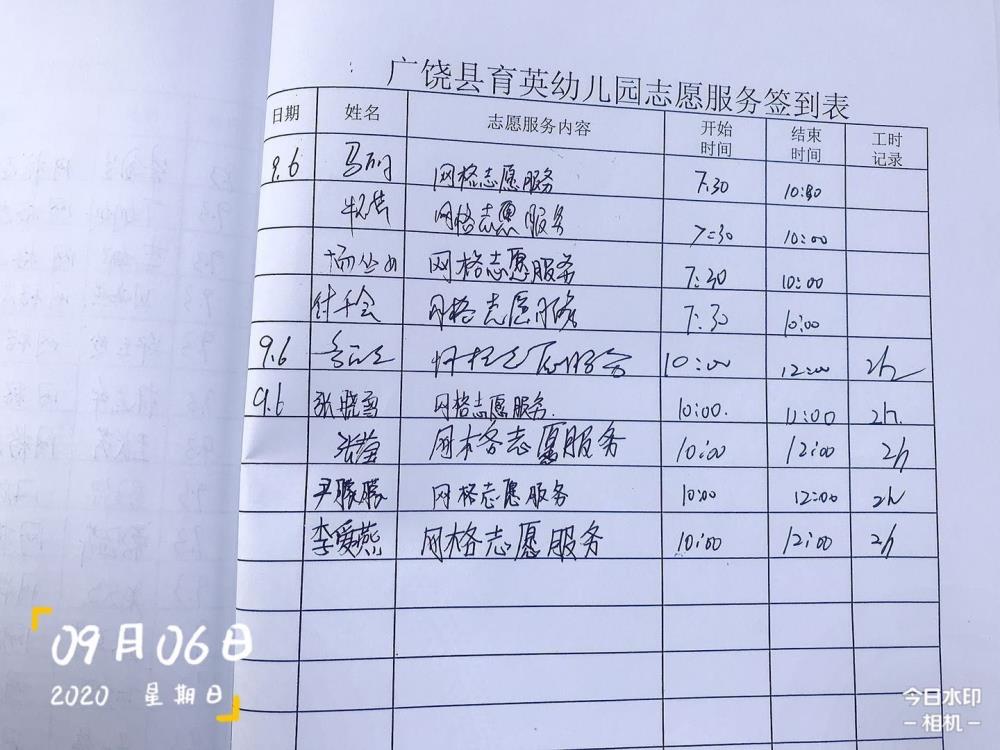 广饶县育英幼儿园志愿服务签到表
日期 姓名 志愿服务内容 开始时间 结束时间 工时记录
9.6 马 网格志愿服务 7:30 10:00
网格志愿服务 7:30 10:00
网格志愿服务 7:30 10:00
付千会 网格志愿服务 7:30 10:00
9.6 网格志愿服务 10:00 12:00 2h
9.6 张晓雪 网格志愿服务. 10:00. 2h.
张莹 网格志愿服务 10:00 12:00 2h
尹朦朦 网格志愿服务 10:00 12:00 2h
李爱燕 网格志愿服务 10:00 12:00 2h
09月06日
2020 星期日
今日水印
-相机-